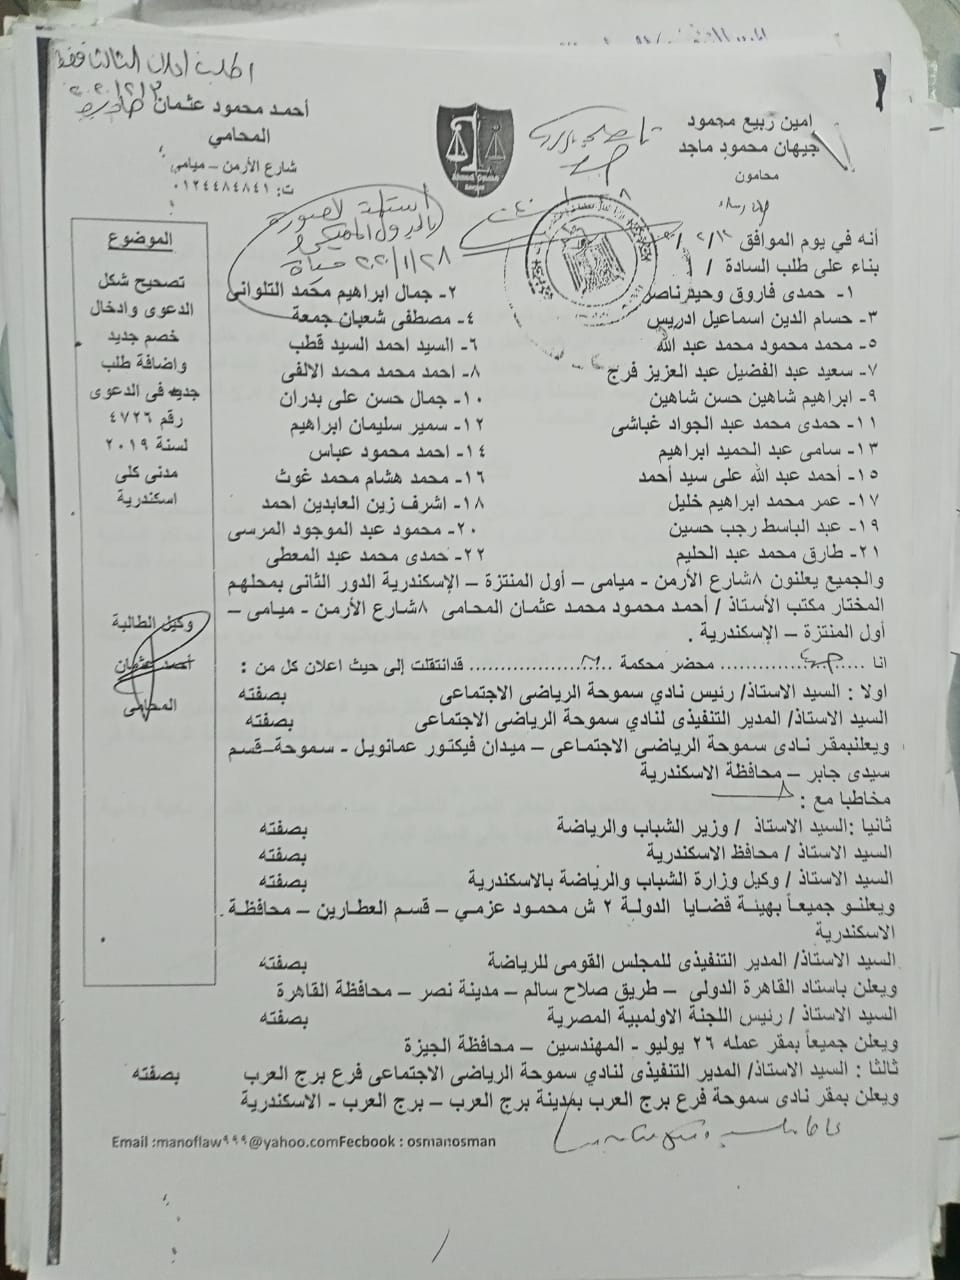 اطلب اعلان الثالث فقط
امين ربيع محمود
جيهان محمود ماجد
محامون
أحمد محمود عثمان
المحامي
شارع الأرمن – ميامي
ت: ٠١٢٤٤٨٤٨٤١
استلمت الصورة
٢٠٢٠/١/٢٨
أنه في يوم الموافق
بناء على طلب السادة /
١- حمدى فاروق وحيد ناصر
٢- جمال ابراهيم محمد التلوانى
٣- حسام الدين اسماعيل ادريس
٤- مصطفى شعبان جمعة
٥- محمد محمود محمد عبد الله
٦- السيد احمد السيد قطب
٧- سعيد عبد الفضيل عبد العزيز فرج
٨- احمد محمد محمد الالفى
٩- ابراهيم شاهين حسن شاهين
١٠- جمال حسن على بدران
١١- حمدى محمد عبد الجواد غباشى
١٢- سمير سليمان ابراهيم
١٣- سامى عبد الحميد ابراهيم
١٤- احمد محمود عباس
١٥- أحمد عبد الله على سيد أحمد
١٦- محمد هشام محمد غوث
١٧- عمر محمد ابراهيم خليل
١٨- اشرف زين العابدين احمد
١٩- عبد الباسط رجب حسين
٢٠- محمود عبد الموجود المرسى
٢١- طارق محمد عبد الحليم
٢٢- حمدى محمد عبد المعطى
والجميع يعلنون ٨ شارع الأرمن - ميامى – أول المنتزة – الإسكندرية الدور الثانى بمحلهم
المختار مكتب الأستاذ / أحمد محمود محمد عثمان المحامى ٨ شارع الأرمن - ميامى –
أول المنتزة – الإسكندرية .
انا .................... محضر محكمة .................... قدانتقلت إلى حيث اعلان كل من :
اولا : السيد الاستاذ/ رئيس نادي سموحة الرياضى الاجتماعى بصفته
السيد الاستاذ/ المدير التنفيذى لنادي سموحة الرياضى الاجتماعى بصفته
ويعلنبمقر نادى سموحة الرياضى الاجتماعى – ميدان فيكتور عمانويل - سموحة – قسم
سيدى جابر – محافظة الاسكندرية
مخاطبا مع :
ثانيا :السيد الاستاذ / وزير الشباب والرياضة بصفته
السيد الاستاذ / محافظ الاسكندرية بصفته
السيد الاستاذ / وكيل وزارة الشباب والرياضة بالاسكندرية بصفته
ويعلنو جميعاً بهيئة قضايا الدولة ٢ ش محمود عزمي – قسم العطارين – محافظة
الاسكندرية
السيد الاستاذ/ المدير التنفيذى للمجلس القومى للرياضة بصفته
ويعلن باستاد القاهرة الدولى – طريق صلاح سالم – مدينة نصر – محافظة القاهرة
السيد الاستاذ / رئيس اللجنة الاولمبية المصرية بصفته
ويعلن جميعاً بمقر عمله ٢٦ يوليو - المهندسين – محافظة الجيزة
ثالثا : السيد الاستاذ/ المدير التنفيذى لنادي سموحة الرياضى الاجتماعى فرع برج العرب بصفته
ويعلن بمقر نادى سموحة فرع برج العرب بمدينة برج العرب – برج العرب - الاسكندرية
الموضوع
تصحيح شكل
الدعوى وادخال
خصم جديد
واضافة طلب
جديد فى الدعوى
رقم ٤٧٢٦
لسنة ٢٠١٩
مدنى كلى
اسكندرية
وكيل الطالبة
أحمد عثمان
المحامى
Email :manoflaw٩٩٩@yahoo.comFecbook : osmanosman